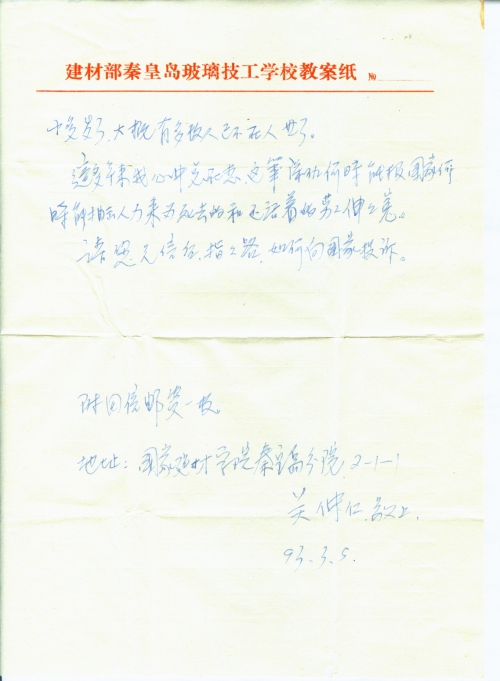 建材部秦皇岛玻璃技工学校教案纸 №
十多岁了,大概有多数人已不在人世了。
这多年来我心中总在想,这笔常仇何时能报国家何
时能抽出人力来为死去的和还活着的劳工伸伸冤。
请恩元信后,指指路,如何向国家投诉。
附回信邮资一枚。
地址:国家建材学院秦皇岛分院,2-1-1
关仲仁,敬上.
93.3.5.